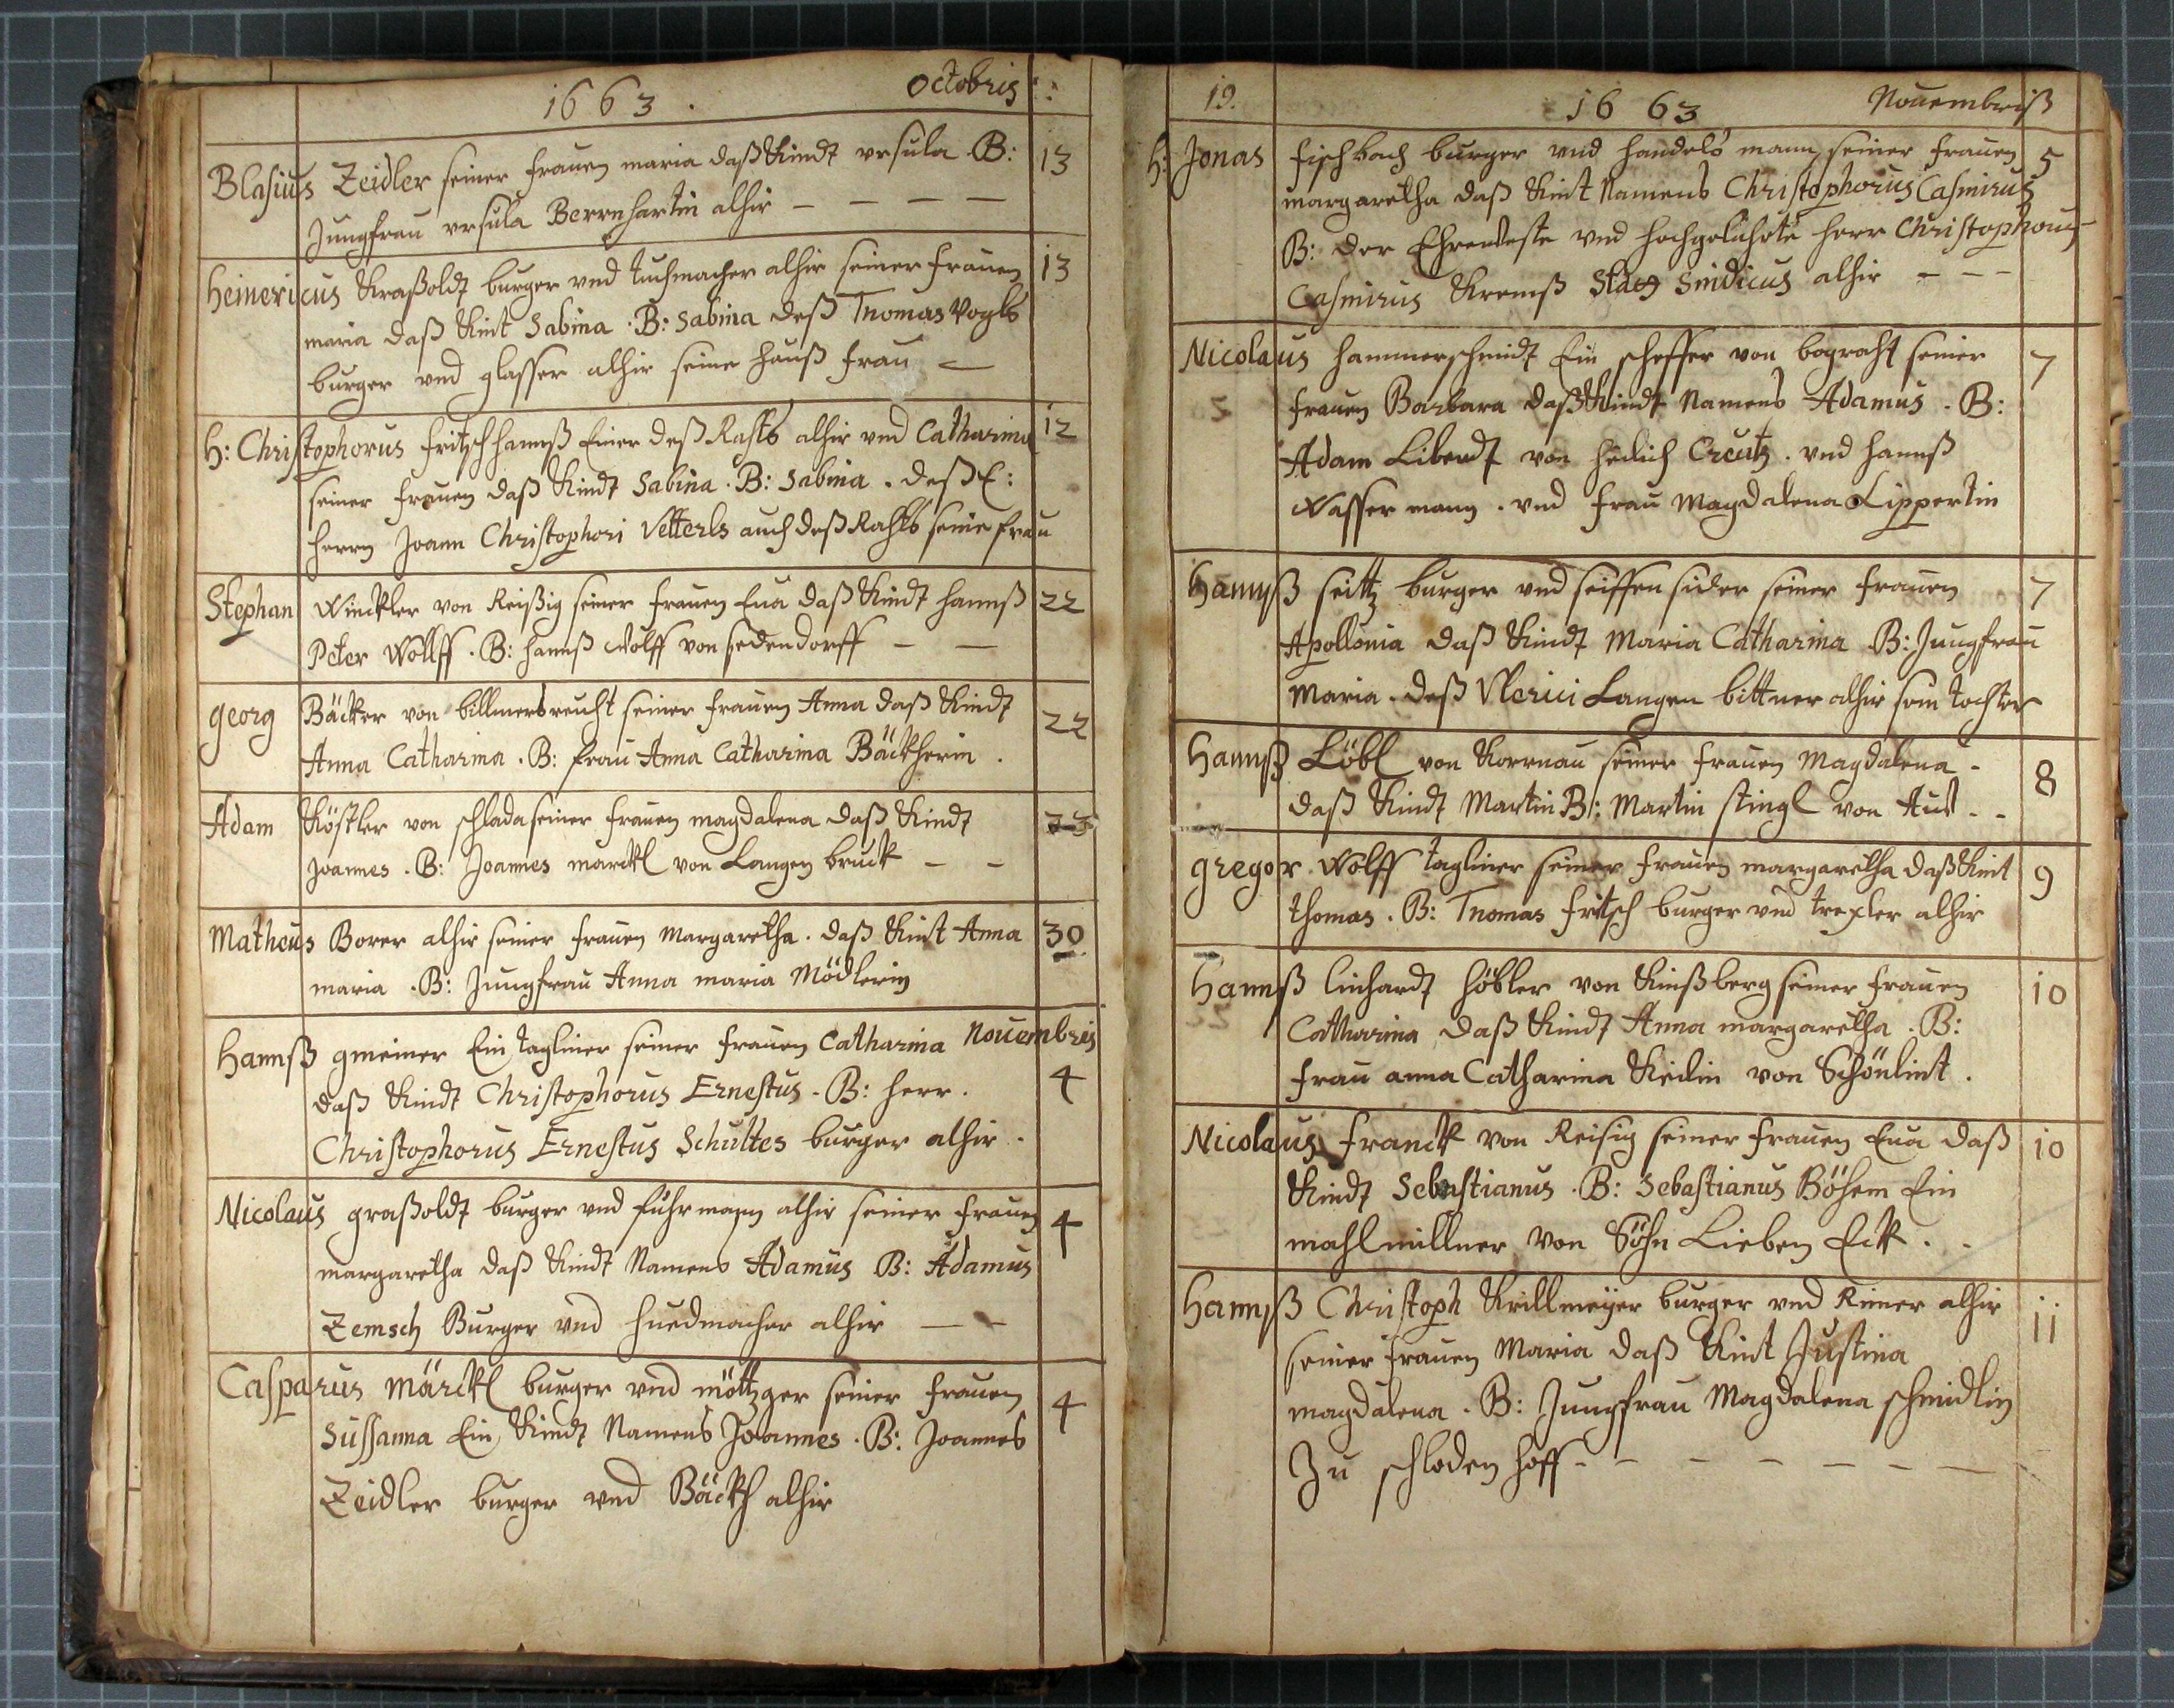 1663. Octobris
Blasius Zeidler seiner frauen maria daß Kindt vrsula B: 13
Jungfrau vrsula Bernhartin alhir
Heinericus Kraßoldt burger vnd tuchmacher alhir seiner frauen 13
maria daß Kint Sabina. B: Sabina deß Thomas Vogls
burger vnd glasser alhir seine hauß frau
H: Christophorus fritschhannß Einer deß Rahts alhir vnd Catharina 12
seiner frauen daß Kindt Sabina. B: Sabina. deß E:
herrn Joann Christophori Vetterls auch deß Rahts seine frau
Stephan Winckler von Reißig seiner frauen Eua daß Kindt hannß 22
Peter Wolff. B: hannß Wolff von sedendorff
georg Bäcker von billmersreucht seiner frauen Anna daß Kindt 22
Anna Catharina. B: frau Anna Catharina Bäckherin.
Adam Köstler von schlada seiner frauen magdalena daß Kindt 23
Joannes. B: Joannes marckl von Langen bruck
Matheus Borer alhir seiner frauen Margaretha. daß Kint Anna 30
maria. B: Jungfrau Anna maria Mödlerin
Hannß gmeiner Ein tagliner seiner frauen Catharina Nouembris
daß Kindt Christophorus Ernestus. B: herr. 4
Christophorus Ernestus Schultes burger alhir.
Nicolaus graßoldt burger vnd fuhrmann alhir seiner frauen 4
margaretha daß Kindt Namens Adamus B: Adamus
Zemsch Burger vnd huedmacher alhir
Casparus Märckl burger vnd mötzger seiner frauen 4
Sussanna Ein Kindt Namens Joannes. B: Joannes
Zeidler burger vnd Bäckh alhir
19. 1663 Nouembriß
H: Jonas fischbach burger vnd handels mann seiner frauen 5
margaretha daß Kint Namens Christophorus Casmirus
B: der Ehrenveste vnd hochgelährte herr Christophorus
Casmirus Kremß Sindicus alhir
Nicolaus hammerschmidt Ein scheffer von seiner 7
frauen Barbara daß Kindt Namens Adamus. B:
Adam Liberdt von heilich Creutz. vnd hannß
Wasser mann. vnd frau Magdalena Lippertin
Hannß seitz burger vnd seiffen sider seiner frauen 7
Apollonia daß Kindt Maria Catharina B: Jungfrau
Maria. deß Vlerici Langen bittner alhir sein tochter
Hannß Löbl von Kornau seiner frauen Magdalena 8
daß Kindt Martin B: Martin stingl von Aus
gregor Wolff tagliner seiner frauen margaretha daß Kint 9
thomas. B: Thomas fritsch burger vnd trexler alhir
Hannß linhardt höbler von Kinßberg seiner frauen 10
Catharina daß Kindt Anna margaretha. B:
frau anna Catharina Keilin von Schönlint.
Nicolaus franck von Reisig seiner frauen Eua daß 10
Kindt Sebastianus. B: Sebastianus Böhem Ein
mahlmillner von Söhn Lieben Eck.
Hannß Christoph Krillmeyer burger vnd Rimer alhir 11
seiner frauen Maria daß Kint Justina
magdalena. B: Jungfrau Magdalena schmidlin
Zu schloden hoff